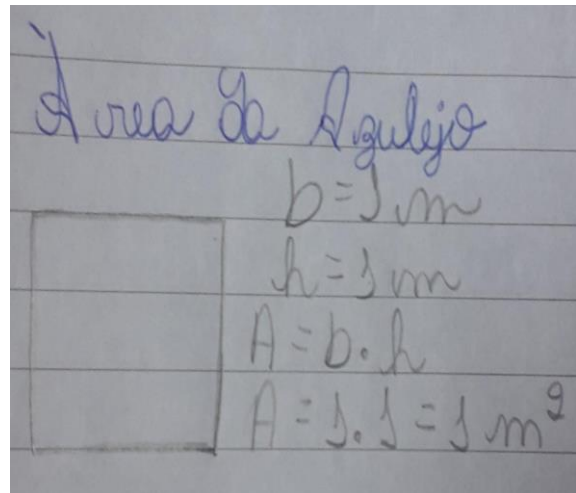 Àrea da Azulejo
b = 1 m
h = 1 m
A = b . h
A = 1 . 1 = 1 m²